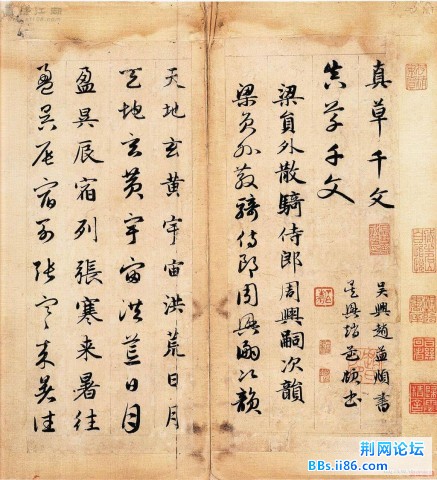 真草千文
吳興趙孟頫書
真草千文
吳興趙孟頫書
梁員外散騎侍郎周興嗣次韻
梁員外散騎侍郎周興嗣次韻
天地玄黃宇宙洪荒日月
天地玄黃宇宙洪荒日月
盈昃辰宿列張寒来暑往
盈昃辰宿列張寒来暑往
荆网论坛
BBs.ii86.com